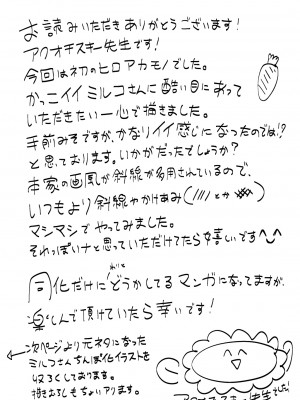 お読みいただきありがとうございます!
アクオチスキー先生です!
今回は初のヒロアカモノでした。
かっこイイミルコさんに酷い目にあって
いただきたい一心で描きました。
手前みそですが、かなりイイ感じになったのでは!?
と思っております。いかがだったでしょうか?
本家の画風が斜線が多用されているので、
いつもより斜線やかけあみ(//// とか )
マシマシでやってみました。
それっぽいナと思っていただけてたら嬉しいです〜
同化だけにどうかしてるマンガになってますが、
わりと
楽しんで頂けていたら幸いです!
← 次ページより元ネタになった
ミルコさんちんぽ化イラストを
収ろくしております。
描きおろしもちょいアリます。
アクオチスキー先生でした!